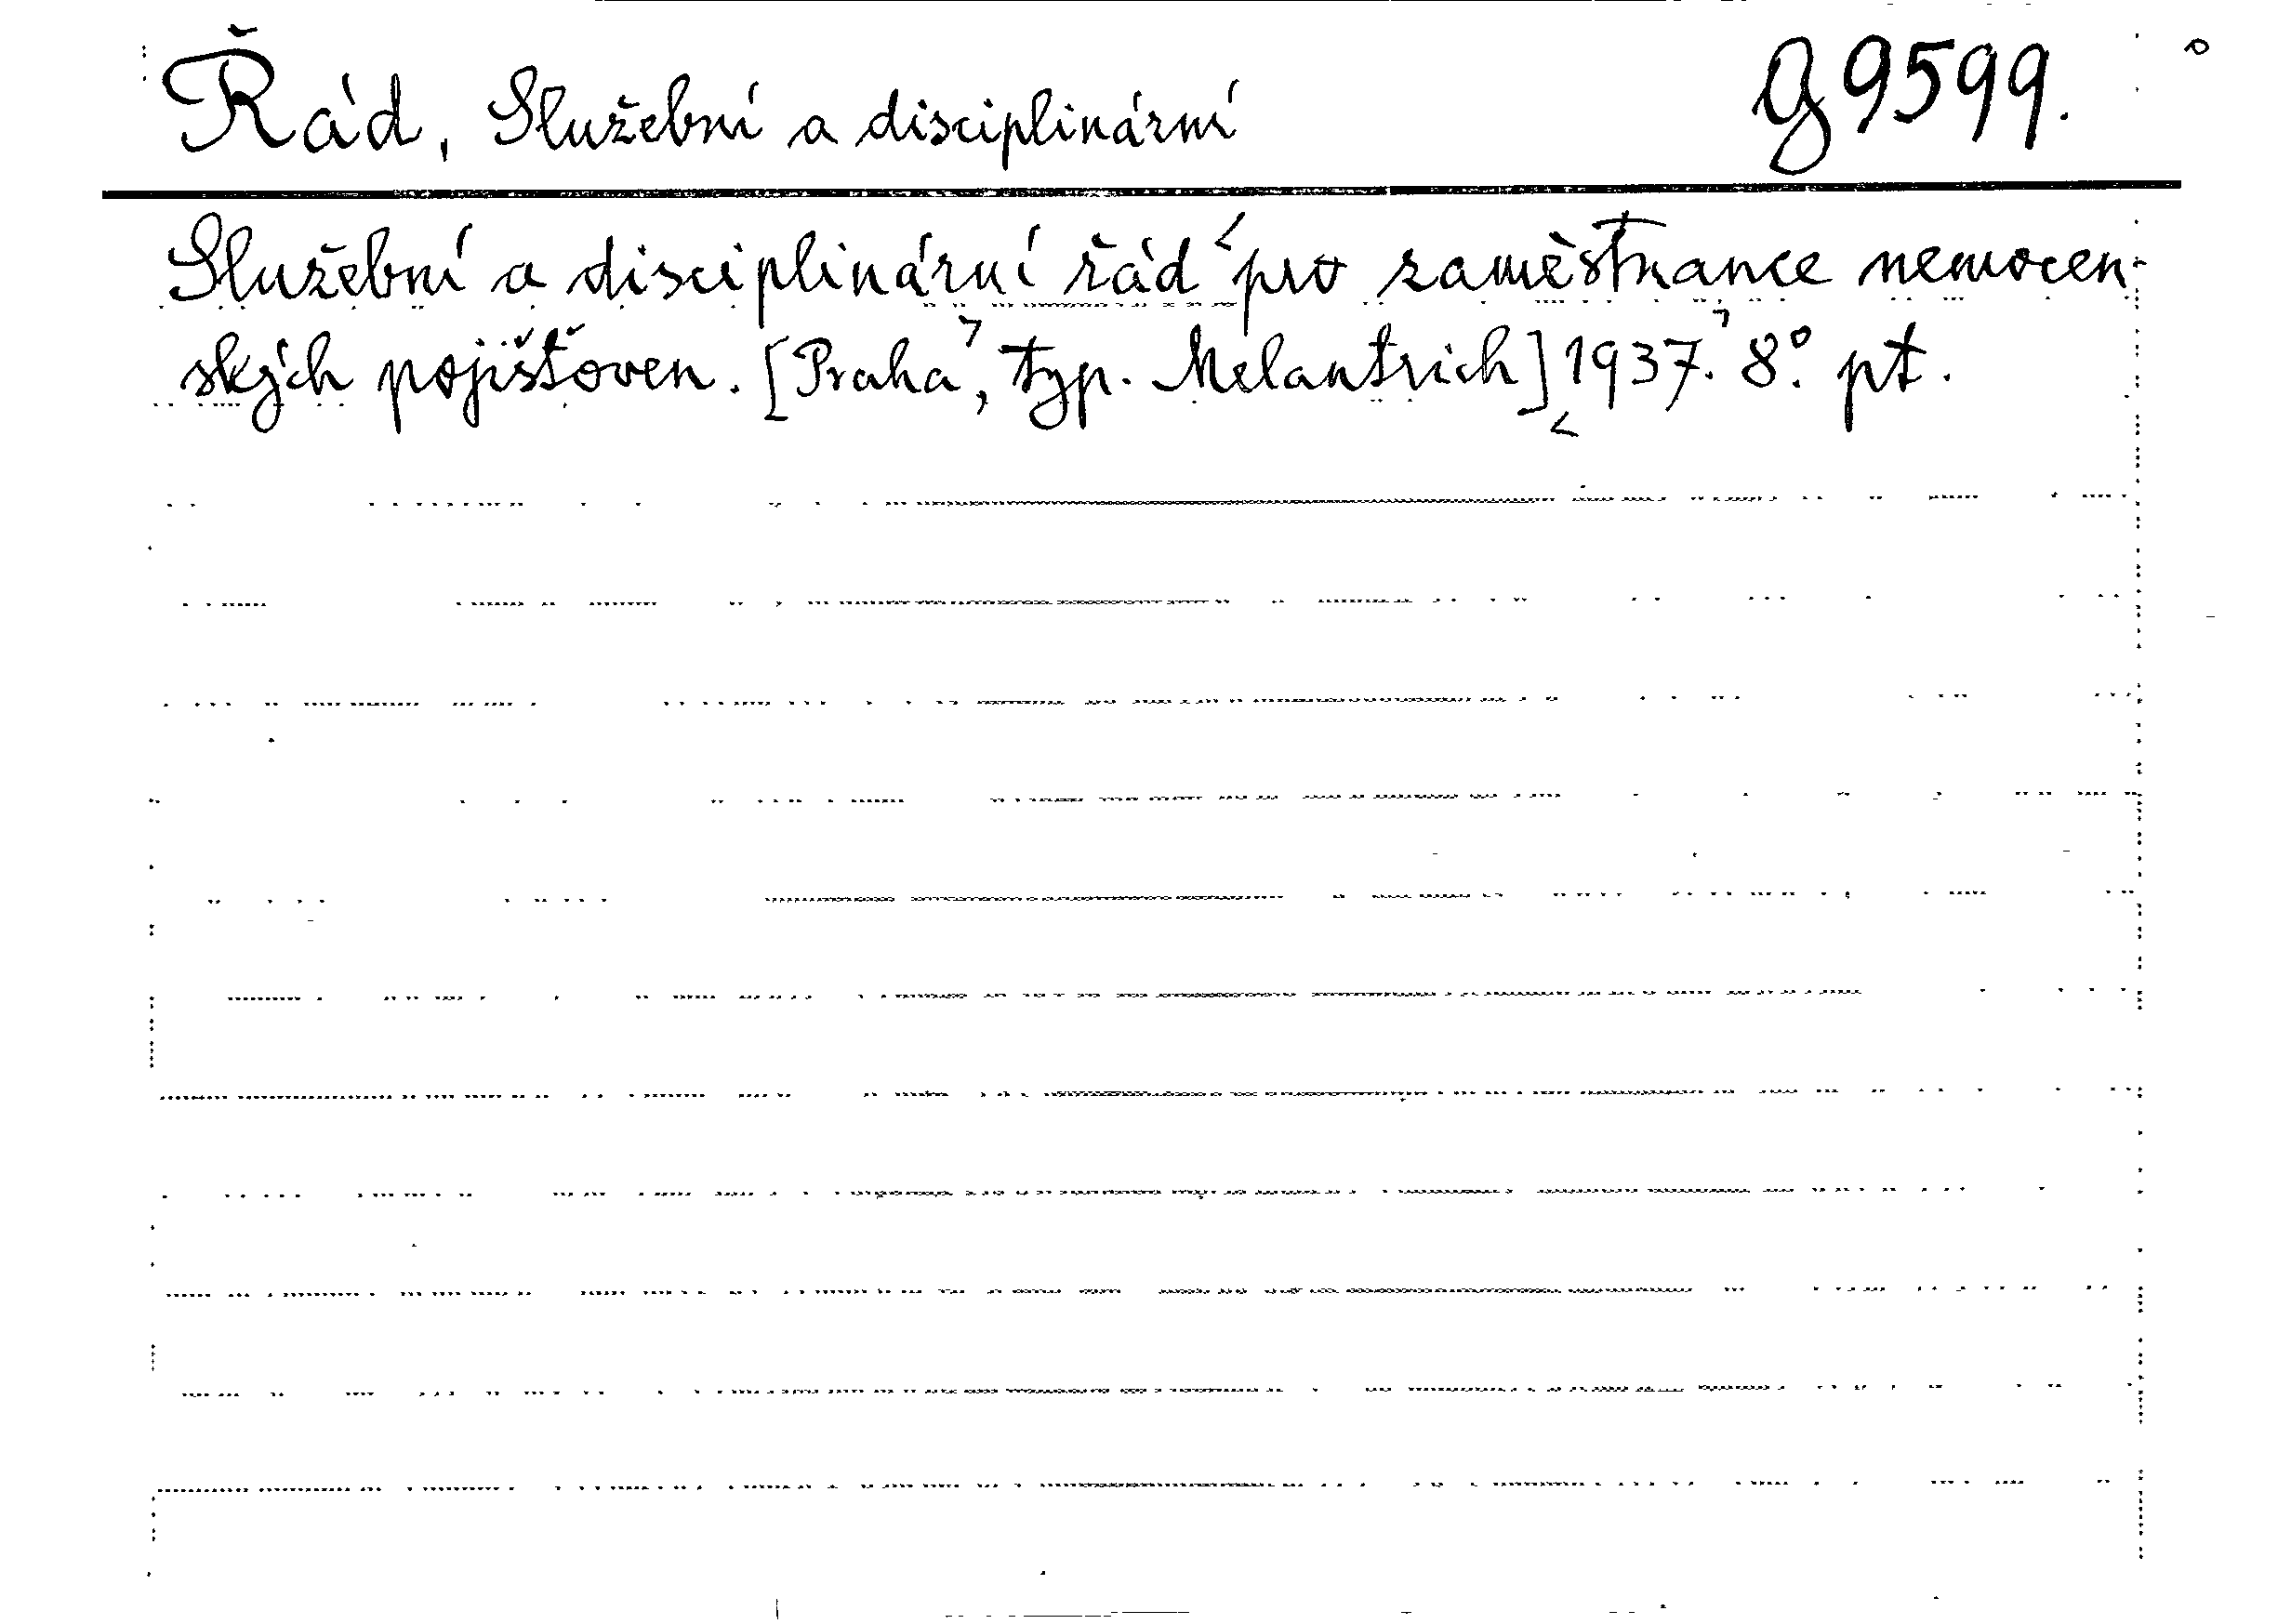 Řád, Služební a disciplinární g 9599.
Služební a disciplinární řád pro zaměstnance nemocen-
ských pojišťoven. [Praha, typ. Melantrich] 1937. 8° pt.